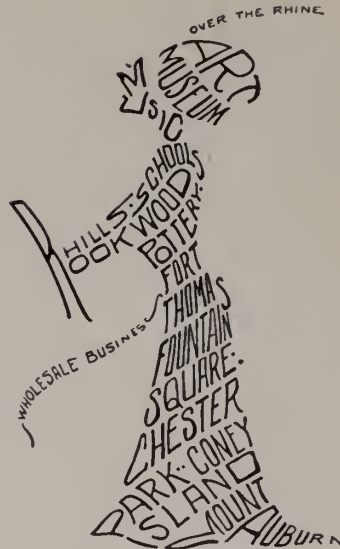 OVER THE RHINE
ART
MUSEUM
MUSIC
HILLS: SCHOOLS
ROOKWOOD
POTTERY.
FORT
THOMAS
WHOLESALE BUSINESS
FOUNTAIN
SQUARE:.
CHESTER
PARK.. CONEY
ISLAND
MOUNT
AUBURN